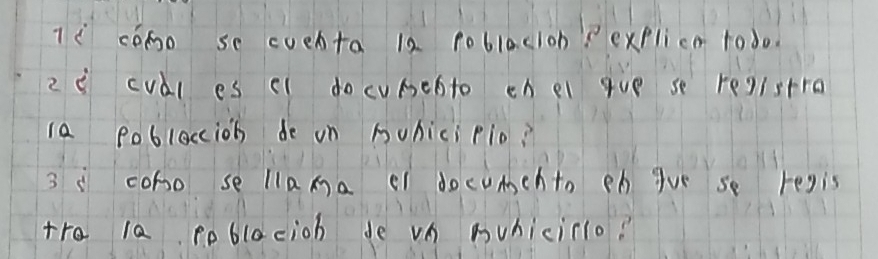 1 ¿ cómo se cuenta la poblacion? explica todo.
2 ¿ cual es el documento en el que se registra
la poblacción de un municipio?
3 ¿ como se llama el documento en que se regis
tra la poblacion de un municipio?